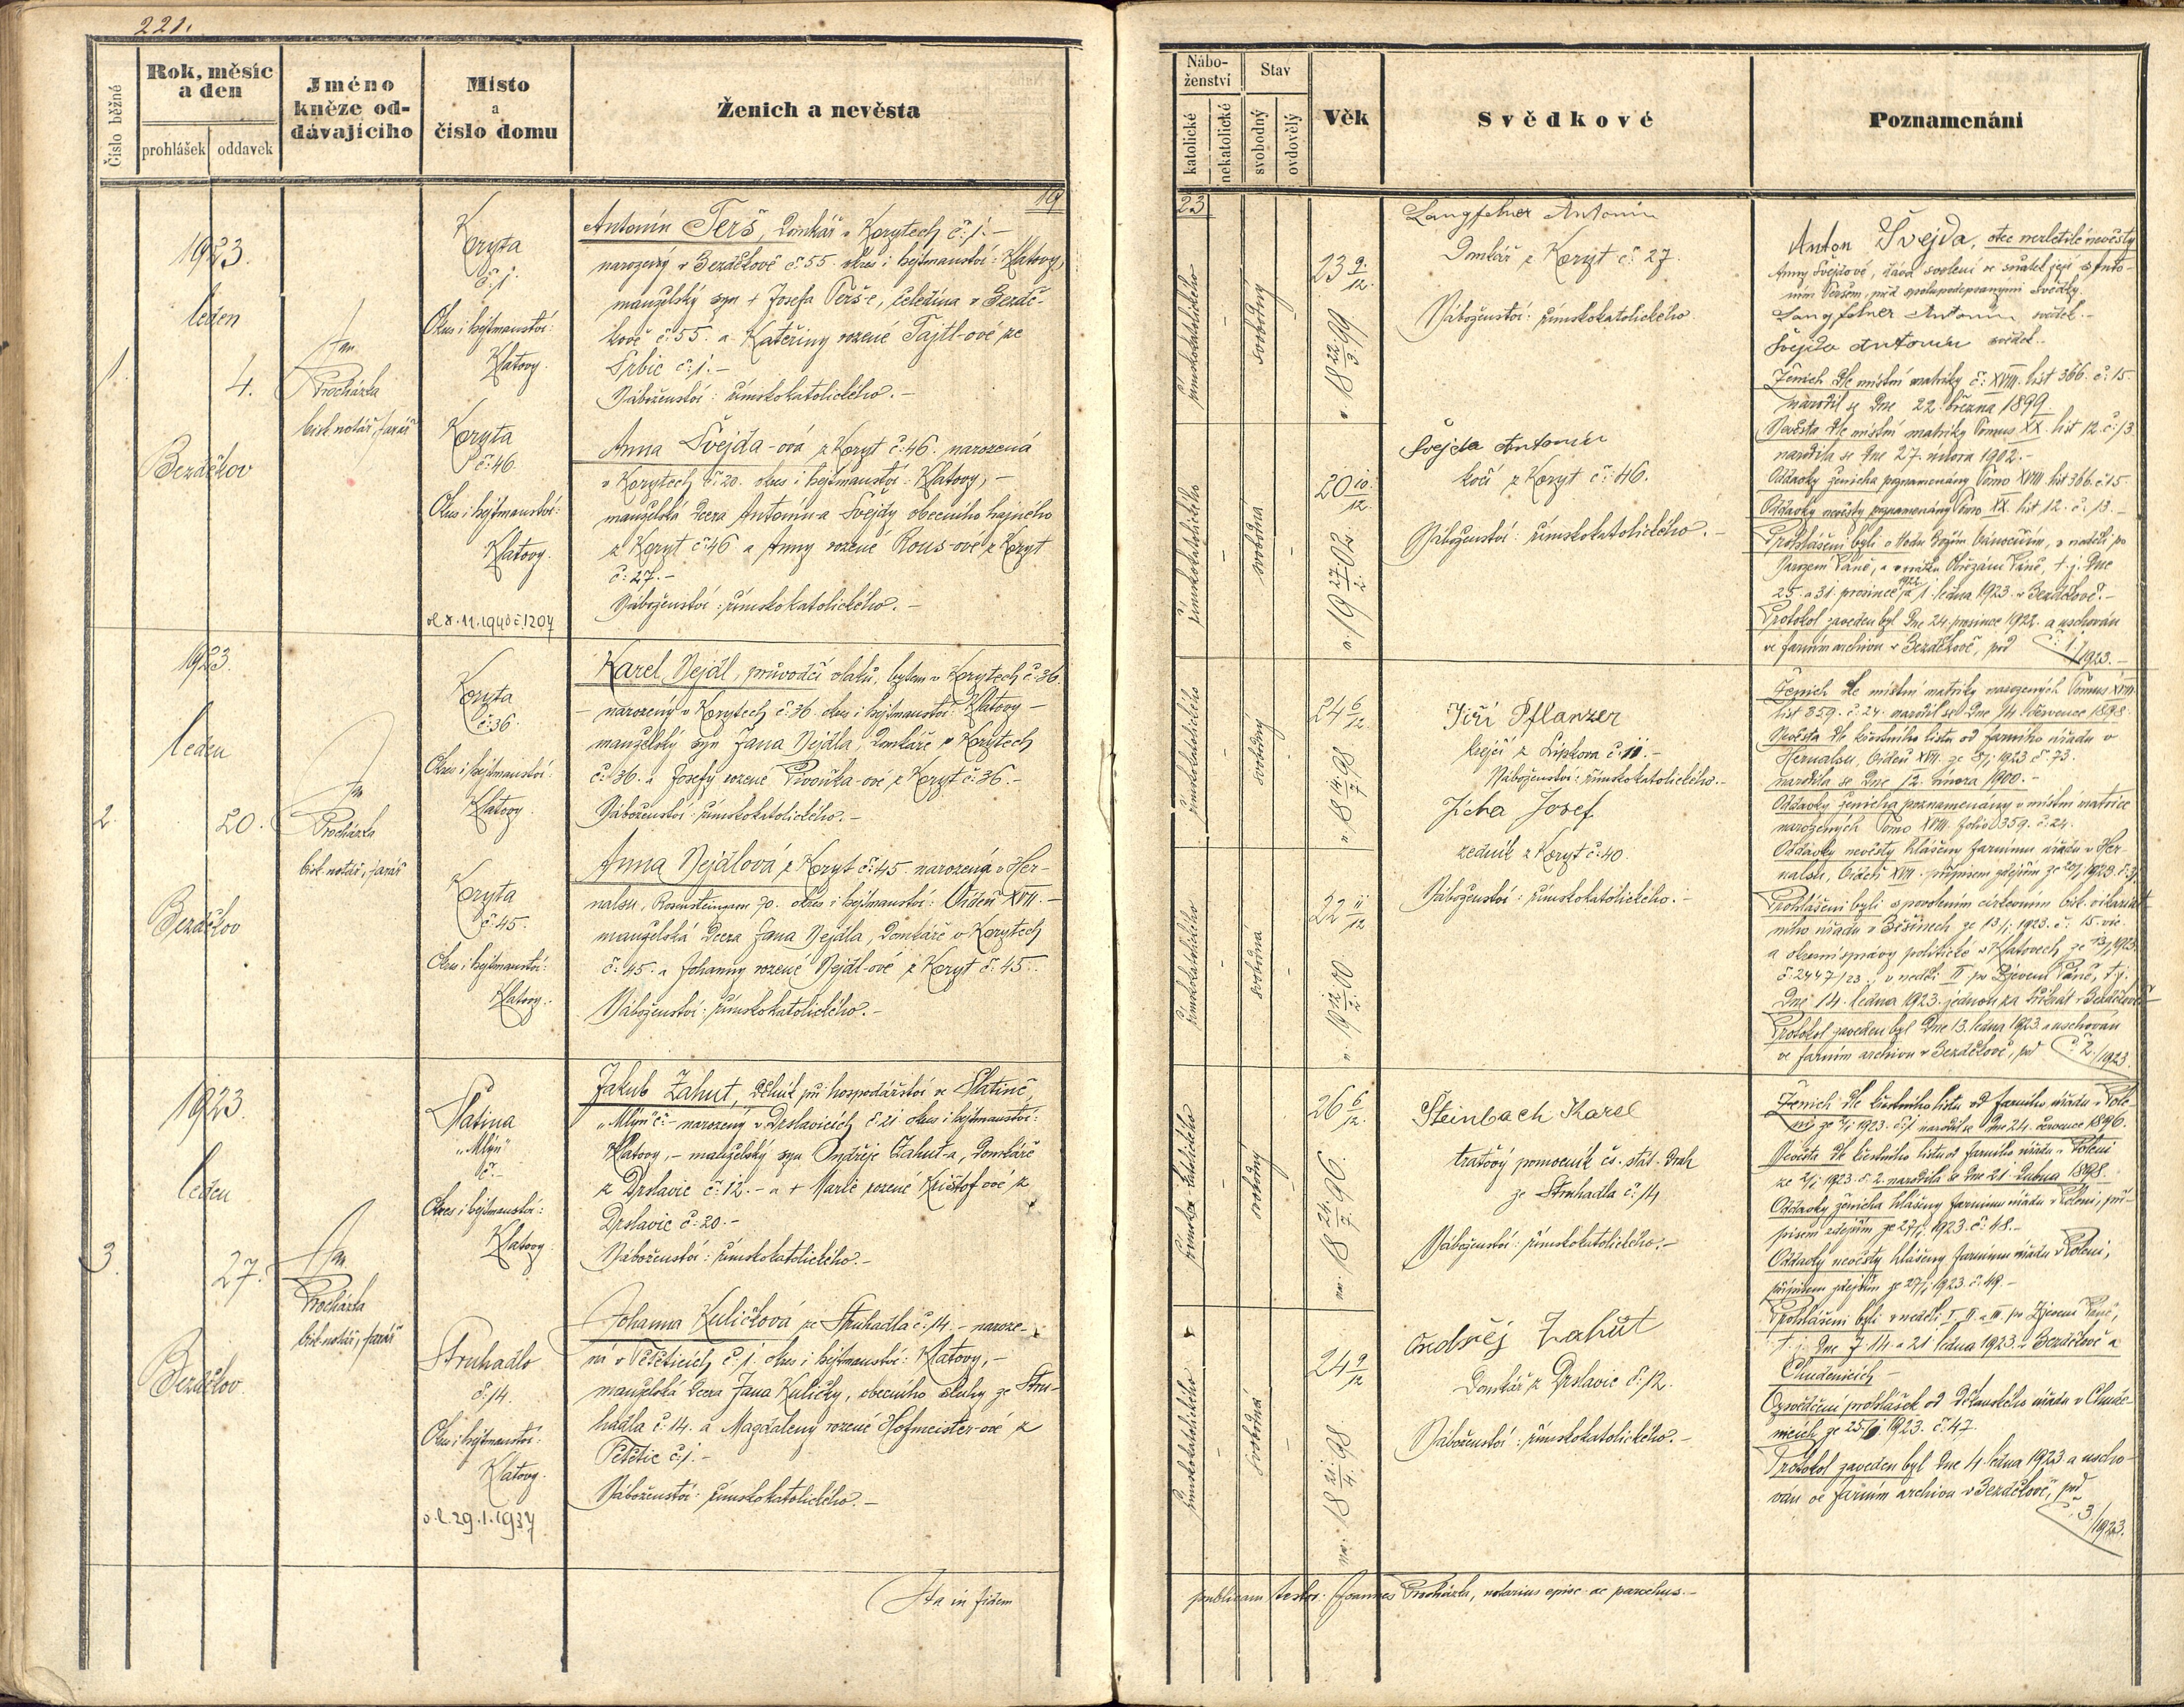 221.
Číslo běžné
Rok, měsíc
a den
prohlášek
oddavek
Jméno
kněze od-
dávajícího
Místo
a
číslo domu
Ženich a nevěsta
19
1923.
leden
1.
4.
Bezděkov
Jan
Procházka
bisk. notář, farář
Koryta
č: 1.
Okres i hejtmanství:
Klatovy.
Antonín Terš, domkář v Korytech č: 1. –
narozený v Bezděkově č: 55. okres i hejtmanství: Klatovy,
manželský syn + Josefa Terš-e, čeledína v Bezdě-
kově č: 55. a Kateřiny rozené Tajtl-ové ze
Srbic č: 1. –
Náboženství: římskokatolického. –
Koryta
č: 46.
Okres i hejtmanství:
Klatovy.
Anna Švejda-ová z Koryt č: 46. narozená
v Korytech č: 20. okres i hejtmanství: Klatovy, –
manželská dcera Antonín-a Švejdy obecního hajného
z Koryt č: 46 a Anny rozené Rous-ové z Koryt
č: 27. –
Náboženství: římskokatolického. –
ol 8. 11. 1940 č. 1207
1923.
leden
2.
20.
Bezděkov
Jan
Procházka
bisk. notář, farář
Koryta
č: 36.
Okres i hejtmanství:
Klatovy.
Karel Nejdl, průvodčí vlaků, bytem v Korytech č: 36.
– narozený v Korytech č: 36. okres i hejtmanství: Klatovy –
manželský syn Jana Nejdla, domkáře v Korytech
č: 36. a Josefy rozené Pivoňka-ové z Koryt č: 36. –
Náboženství: římskokatolického. –
Koryta
č: 45.
Okres i hejtmanství:
Klatovy.
Anna Nejdlová z Koryt č: 45. narozená v Her-
nalsu, 70. okres i hejtmanství: Vídeň XVII. –
manželská dcera Jana Nejdla, domkáře v Korytech
č: 45. a Johanny rozené Nejdl-ové z Koryt č: 45.
Náboženství: římskokatolického. –
1923.
leden
3.
27.
Bezděkov.
Jan
Procházka
bisk. notář, farář
Slatina
„Mlýn“
č: –
Okres i hejtmanství:
Klatovy.
Jakub Zahut, dělník při hospodářství ve Slatině,
„Mlýn“ č: – narozený v Drslavicích č: 21 okres i hejtmanství:
Klatovy, – manželský syn Ondřeje Zahut-a, domkáře
z Drslavic č: 12. – a + Marie rozené Krištof-ové z
Drslavic č: 20. –
Náboženství: římskokatolického. –
Struhadlo
č: 14.
Okres i hejtmanství:
Klatovy.
Johanna Kuličková ze Struhadla č: 14. – naroze-
ná v Petěticích č: 1. okres i hejtmanství: Klatovy, –
manželská dcera Jana Kuličky, obecního sluhy ze Stru-
hadla č: 14. a Magdaleny rozené Hofmeister-ové z
Petětic č: 1. –
Náboženství: římskokatolického. –
o. l. 29. 1. 1937
Ita in fidem
Nábo-
ženství
katolické
nekatolické
Stav
svobodný
ovdovělý
Věk
Svědkové
Poznamenání
23
římskokatolického
–
svobodný
–
23 9/12.
n. 18 22/3. 99
Langfelner Antonín
Domkář z Koryt č: 27.
Náboženství: římskokatolického.
Anton Švejda, otec nezletilé nevěsty
Anny Švejdové, dává svolení ve sňatek její s Anto-
nínem Teršem, před spolupodepsanými svědky.
Langfelner Antonín, svědek. –
Švejda Antonín svědek.
Ženich dle místní matriky č: XVIII. list 366. č: 15.
narodil se dne 22. března 1899
Nevěsta dle místní matriky Tomus XX. list 12. č: 13
narodila se dne 27. února 1902. –
Oddavky ženicha poznamenány Tomo XVIII list 366. č: 15
Oddavky nevěsty poznamenány Tomo XX. list 12. č: 13. –
římskokatolického
–
svobodná
–
20 10/12.
n. 19 27/2. 02.
Švejda Antonín
kočí z Koryt č: 46.
Náboženství: římskokatolického. –
Prohlášeni byli o Hodu Božím vánočním, v neděli po
Narození Páně, a v svátku Obřezání Páně, t. j. dne
25. a 31. prosince 1922 a 1. ledna 1923. v Bezděkově. –
Protokol zaveden byl dne 24. prosince 1922. a uschován
ve farním archivu v Bezděkově, pod č: 1./1923. –
římskokatolického
–
svobodný
–
24 6/12
n. 18 14/7 98
Jiří Pflanzer
krejčí z Lipkova č: 11. –
Náboženství: římskokatolického. –
Jícha Josef
zedník z Koryt č: 40.
Náboženství: římskokatolického. –
Ženich dle místní matriky narozených Tomus XVIII
list 359. č: 24. narodil se dne 14. července 1898.
Nevěsta dle křestního listu od farního úřadu v
Hernalsu, Vídeň XVII. ze 8/1 1923 č: 73.
narodila se dne 12. února 1900. –
Oddavky ženicha poznamenány v místní matrice
narozených Tomo XVIII. folio 359. č: 24.
Oddavky nevěsty hlášeny farnímu úřadu v Her-
nalsu, Vídeň XVII. přípisem zdejším ze 20/1 1923.
římskokatolického
–
svobodná
–
22 11/12
n. 19 12/2. 00
Prohlášeni byli s povolením církevním bisk. vikariat-
ního úřadu v Běšinech ze 13/1. 1923. č: 15. vic
a okresní správy politické v Klatovech ze 13/1 1923.
č: 2447/23, v neděli II. po Zjevení Páně, t. j.
dne 14. ledna 1923. jednou za třikrát v Bezděkově
Protokol zaveden byl dne 13. ledna 1923. a uschován
ve farním archivu v Bezděkově, pod č: 2./1923.
římsko-katolického
–
svobodný
–
26 6/12.
na. 18 24/7. 96.
Steinbach Karel
traťový pomocník čs. stát. drah
ze Struhadla č: 14
Náboženství: římskokatolického. –
Ženich dle křestního listu od farního úřadu v Pole-
ni ze 2/1 1923. č: 1 narodil se dne 24. července 1896.
Nevěsta dle křestního listu od farního úřadu v Poleni
ze 2/1. 1923. č: 2. narodila se dne 21. dubna 1898.
Oddavky ženicha hlášeny farnímu úřadu v Poleni, pří-
pisem zdejším ze 27/1. 1923. č: 48. –
Oddavky nevěsty hlášeny farnímu úřadu v Poleni,
přípisem zdejším ze 27/1. 1923. č: 49. –
římskokatolického
–
svobodná
–
24 9/12
na. 18 21/4. 98
Ondřej Zahut
Domkář z Drslavic č: 12.
Náboženství: římskokatolického. –
Prohlášeni byli v neděli I. II. a III. po Zjevení Páně,
t. j. dne 7. 14. a 21. ledna 1923. v Bezděkově a
Chudenicích –
Osvědčení prohlášek od děkanského úřadu v Chude-
nicích ze 25/1 1923. č: 47.
Protokol zaveden byl dne 4. ledna 1923 a uscho-
ván ve farním archivu v Bezděkově, pod
č: 3./1923.
publicam testor: Joannes Procházka, notarius episc. ac parochus. –